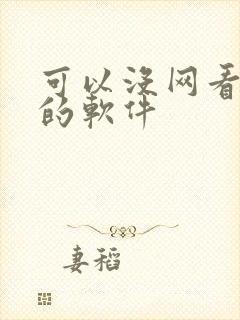 可以没网看
的軟件
妻稻